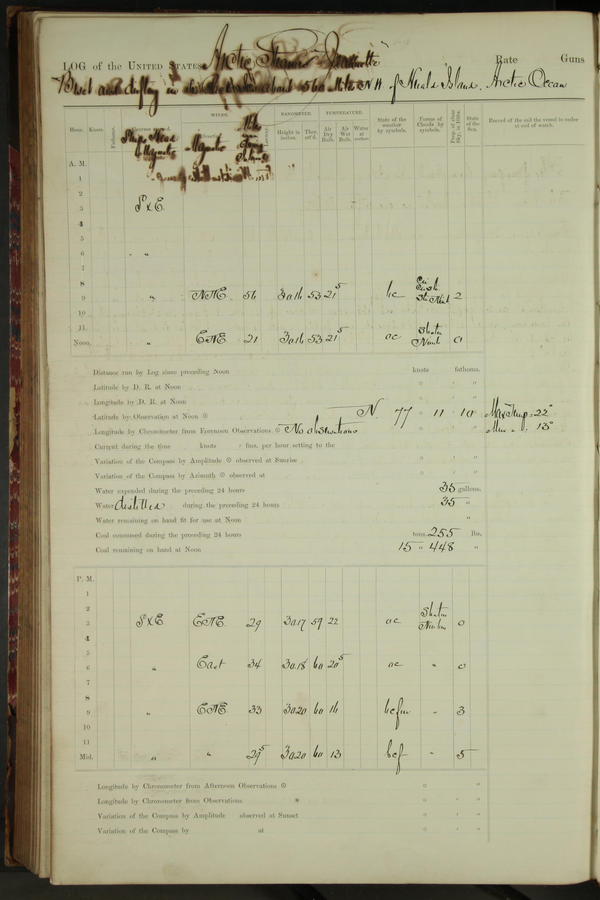 LOG of the UNITED STATES Arctic Steamer Jeannette Rate Guns
Beset and drifting in the about Miles N W of Island, Arctic Ocean
WINDS. BAROMETER. TEMPERATURE.
Hour. Knots. Fathoms. Ships Head by Magnetic Magnetic Height in inches. Ther. att'd. Air Dry Bulb. Air Wet Bulb. Water at surface. State of the weather by symbols. Forms of Clouds by symbols. Prop. of clear Sky, in 10ths. State of the Sea. Record of the sail the vessel is under at end of watch.
A. M.
1
2
3 S x E.
4
5
6 " "
7
8
9 " NNE 56 30.16 53 21⁵ bc 2
10
11
Noon. " ENE 21 30.16 53 21⁵ oc Stratus 0
Distance run by Log since preceding Noon knots fathoms.
Latitude by D. R. at Noon ° ' "
Longitude by D. R. at Noon ° ' "
Latitude by Observation at Noon N 77 11 10 Max Temp. 22°
Longitude by Chronometer from Forenoon Observations No observations Min " 13°
Current during the time knots fms. per hour setting to the
Variation of the Compass by Amplitude observed at Sunrise ° ' "
Variation of the Compass by Azimuth observed at ° ' "
Water expended during the preceding 24 hours 35 gallons.
Water distilled during the preceding 24 hours 35 "
Water remaining on hand fit for use at Noon "
Coal consumed during the preceding 24 hours tons 255 lbs.
Coal remaining on hand at Noon 15 " 448 "
P. M.
1
2
3 S x E ENE 29 30.17 59 22 oc Stratus 0
4
5
6 " East 34 30.18 60 20⁵ oc " 0
7
8
9 " ENE 33 30.20 60 16 " 3
10
11
Mid. " " 29⁵ 30.20 60 13 bcf " 5
Longitude by Chronometer from Afternoon Observations ° "
Longitude by Chronometer from Observations * ° ' "
Variation of the Compass by Amplitude observed at Sunset ° ' "
Variation of the Compass by at ° ' "